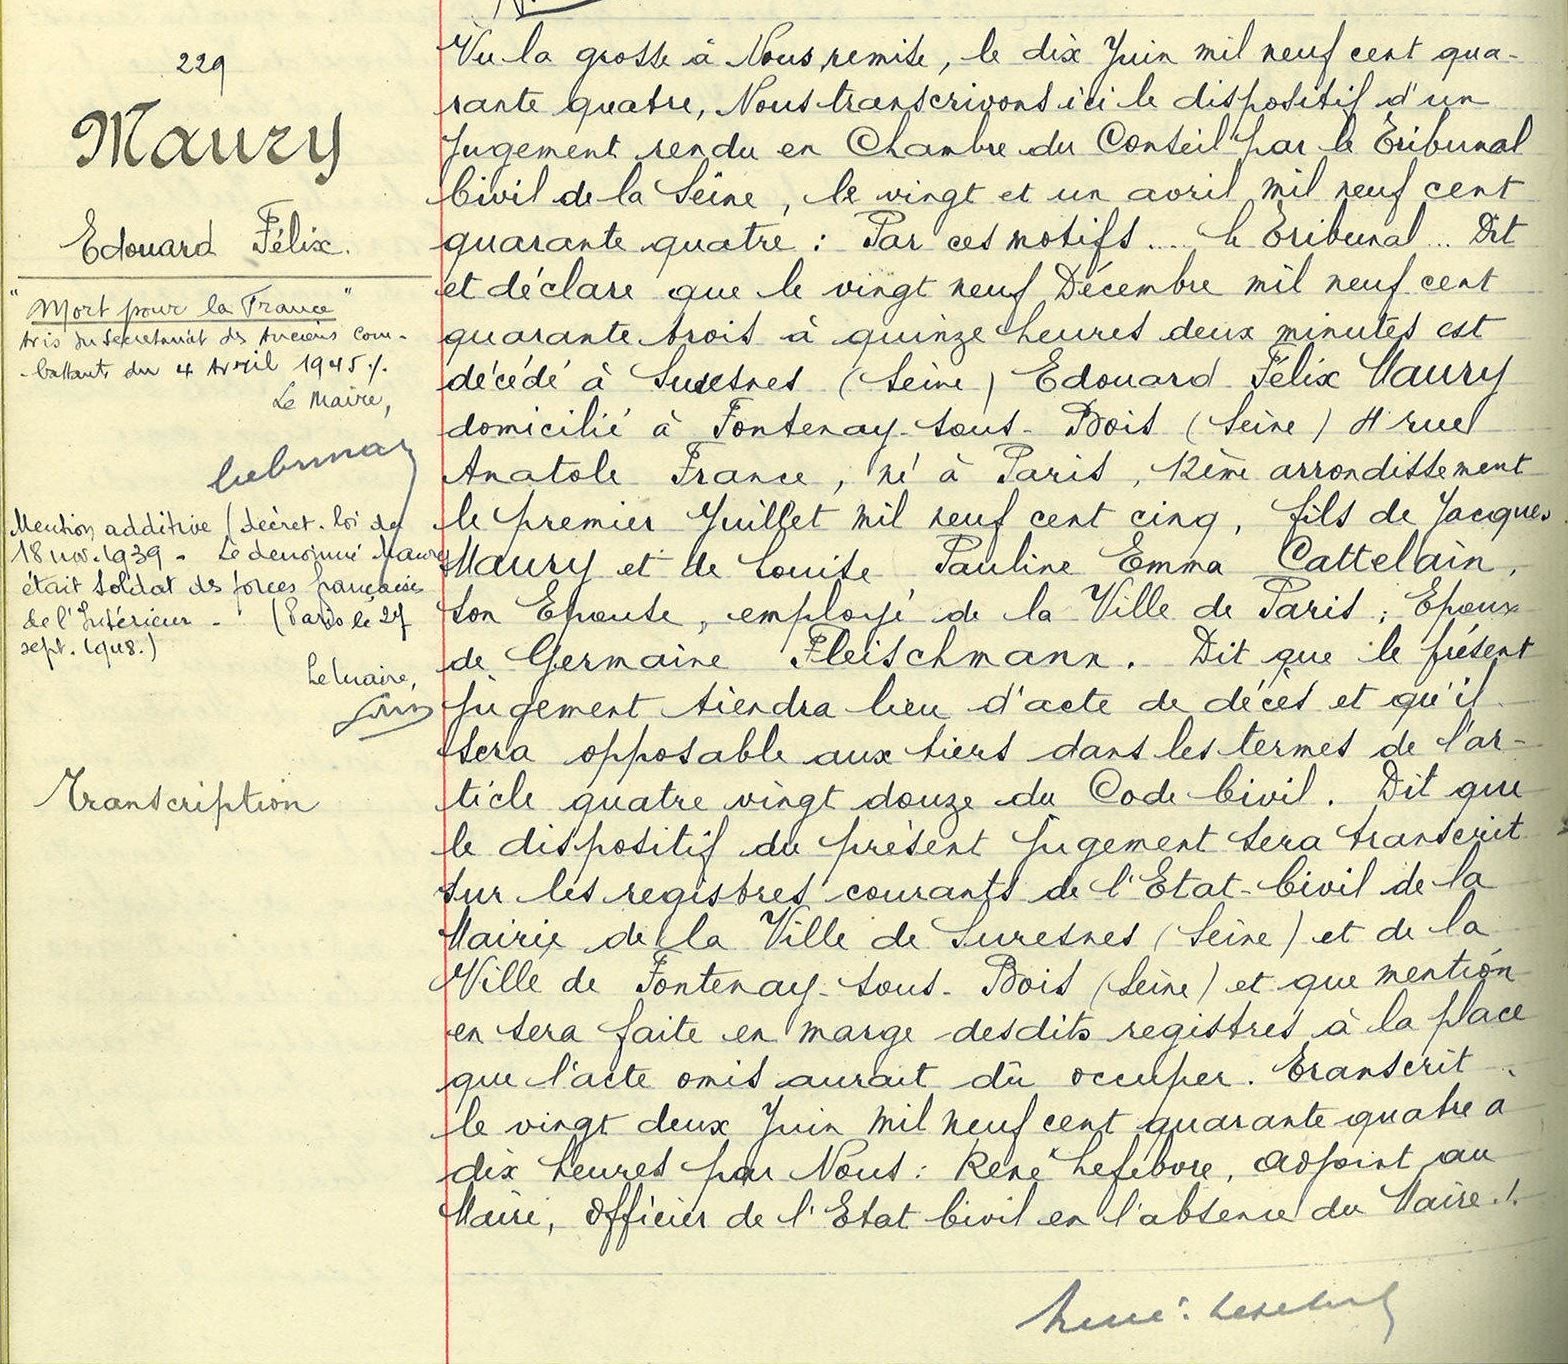 229
Maury
Edouard Félix.
"Mort pour la France"
Avis du Secrétariat des Anciens Com-
-battants du 4 Avril 1945 ./.
Le Maire,
Mention additive (décret-loi du
18 nov. 1939 - Le dénommé Maury
était soldat des forces françaises
de l'Intérieur - (Paris le 27
sept. 1948.)
Le Maire,
Transcription
Vu la grosse à Nous remise, le dix Juin mil neuf cent qua-
rante quatre, Nous transcrivons ici le dispositif d'un
Jugement rendu en Chambre du Conseil par le Tribunal
Civil de la Seine, le vingt et un avril mil neuf cent
quarante quatre : Par ces motifs.... le Tribunal... Dit
et déclare que le vingt neuf Décembre mil neuf cent
quarante trois à quinze heures deux minutes est
décédé à Suresnes (Seine) Edouard Félix Maury
domicilié à Fontenay-sous-Bois (Seine) 4 rue
Anatole France, né à Paris, 12ème arrondissement
le premier Juillet mil neuf cent cinq, fils de Jacques
Maury et de Louise Pauline Emma Cattelain,
son Epouse, employé de la Ville de Paris ; Epoux
de Germaine Fleischmann. Dit que le présent
jugement tiendra lieu d'acte de décès et qu'il
sera opposable aux tiers dans les termes de l'ar-
ticle quatre vingt douze du Code Civil. Dit que
le dispositif du présent jugement sera transcrit
sur les registres courants de l'Etat-Civil de la
Mairie de la Ville de Suresnes (Seine) et de la
Ville de Fontenay-sous-Bois (Seine) et que mention
en sera faite en marge desdits registres à la place
que l'acte omis aurait dû occuper. Transcrit
le vingt deux Juin mil neuf cent quarante quatre a
dix heures par Nous : René Lefebvre, adjoint au
Maire, Officier de l'Etat Civil en l'absence du Maire ./.
René Lefebvre